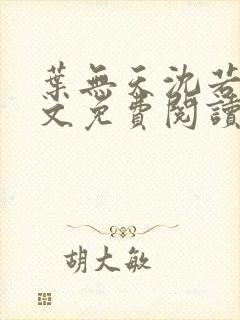 葉無天沈若
文免費閱讀
胡大敏